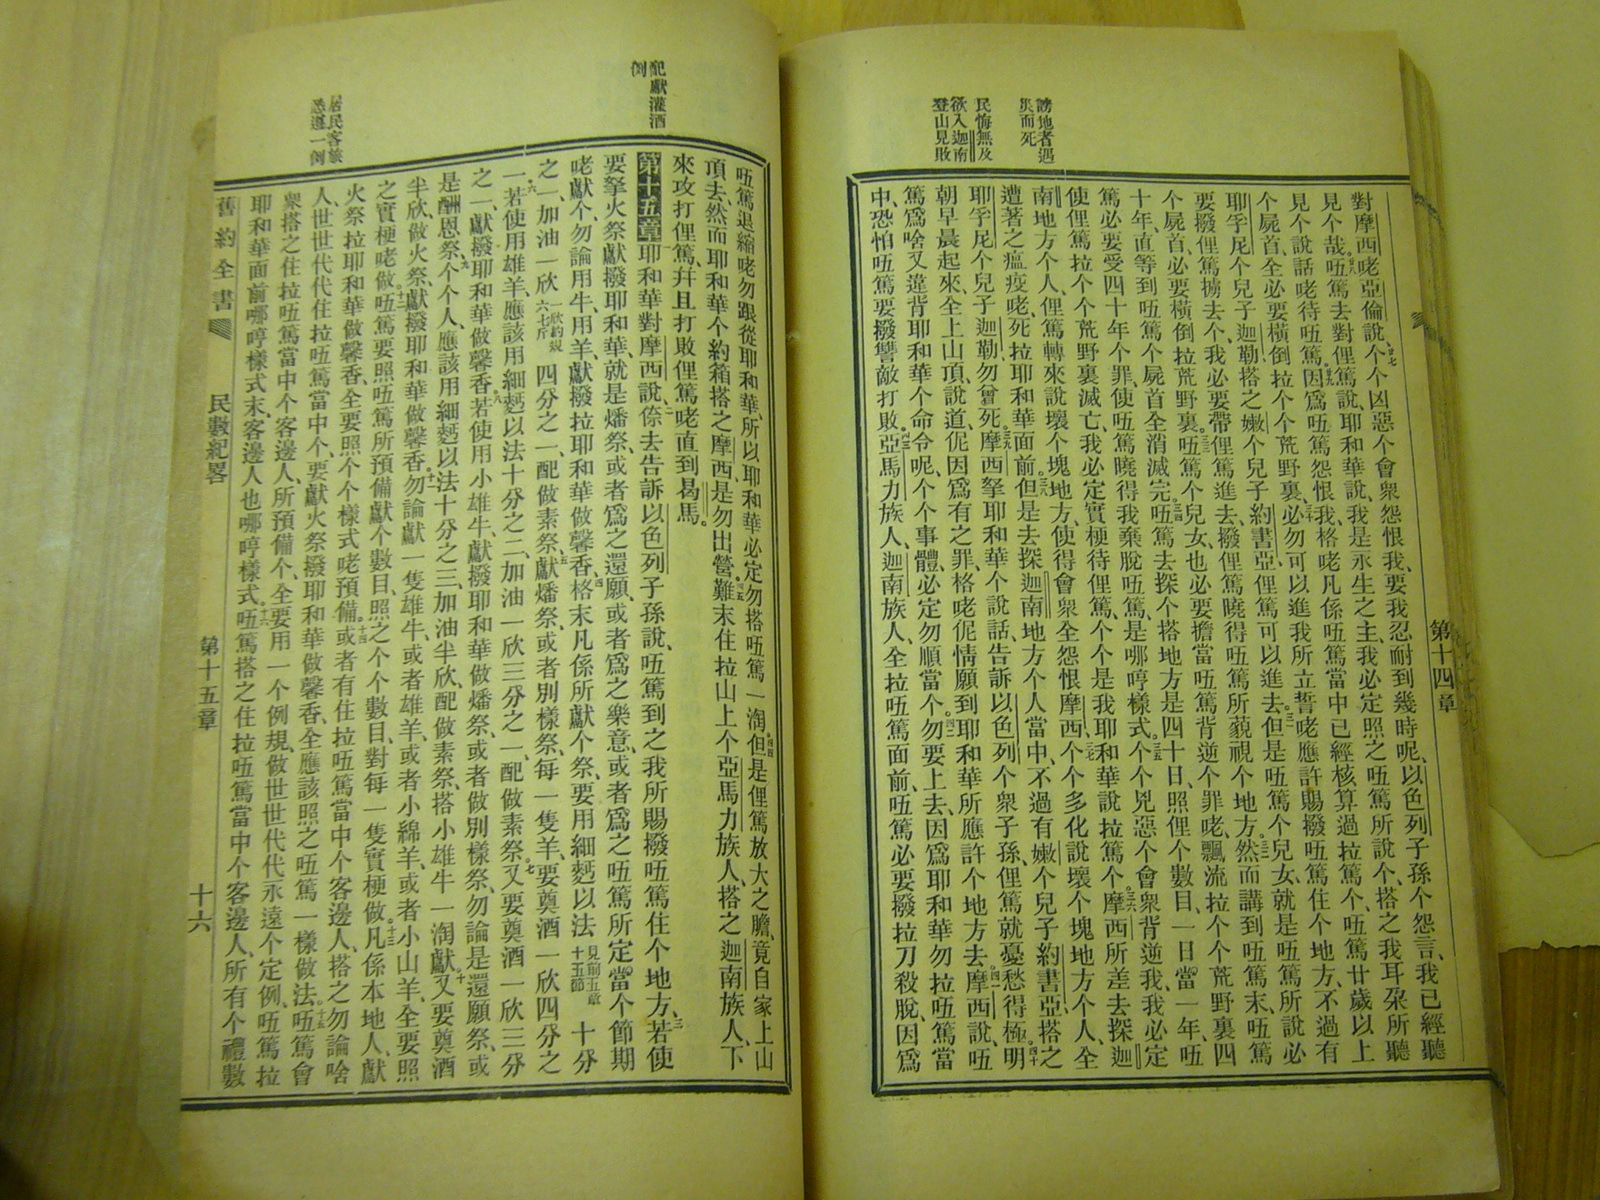 第十四章
謗地者遇
災而死
民悔無及
欲入迦南
登山見敗
對摩西咾亞倫說、廿七个个凶惡个會衆怨恨我、要我忍耐到幾時呢、以色列子孫个怨言、我已經聽
見个哉。廿八㕶篤去對俚篤說、耶和華說、我是永生之主、我必定照之㕶篤所說个、搭之我耳朶所聽
見个說話咾待㕶篤。廿九因爲㕶篤怨恨我、格咾凡係㕶篤當中已經核算過拉篤个、㕶篤廿歲以上
个屍首、全必要橫倒拉个个荒野裏、三十必勿可以進我所立誓咾應許賜撥㕶篤住个地方、不過有
耶孚尼个兒子迦勒搭之嫩个兒子約書亞、俚篤可以進去。三一但是㕶篤个兒女、就是㕶篤所說必
要撥俚篤擄去个、我必要帶俚篤進去、撥俚篤曉得㕶篤所藐視个地方。三二然而講到㕶篤末、㕶篤
个屍首、必要橫倒拉荒野裏。三三㕶篤个兒女、也必要擔當㕶篤背逆个罪咾、飄流拉个个荒野裏四
十年、直等到㕶篤个屍首全消滅完。三四㕶篤去探个搭地方是四十日、照俚个數目、一日當一年、㕶
篤必要受四十年个罪、使㕶篤曉得我棄脫㕶篤、是哪哼樣式。三五个个兇惡个會衆背逆我、我必定
使俚篤拉个个荒野裏滅亡、我必定實梗待俚篤个、个是我耶和華說拉篤个。三六摩西所差去探迦
南地方个人、俚篤轉來說壞个塊地方、使得會衆全怨恨摩西、三七个个多化說壞个塊地方个人、全
遭著之瘟疫咾、死拉耶和華面前。三八但是去探迦南地方个人當中、不過有嫩个兒子約書亞搭之
耶孚尼个兒子迦勒勿曾死。三九摩西拏耶和華个說話、告訴以色列个衆子孫、俚篤就憂愁得極。四十明
朝早晨起來全上山頂說道、伲因爲有之罪、格咾伲情願到耶和華所應許个地方去。四一摩西說、㕶
篤爲啥又違背耶和華个命令呢、个个事體、必定勿順當个。四二勿要上去、因爲耶和華勿拉㕶篤當
中、恐怕㕶篤要撥讐敵打敗。四三亞馬力族人、迦南族人、全拉㕶篤面前、㕶篤必要撥拉刀殺脫、因爲
配獻灌酒
例
居民客旅
悉遵一例
㕶篤退縮咾勿跟從耶和華、所以耶和華必定勿搭㕶篤一淘。四四但是俚篤放大之膽、竟自家上山
頂去、然而耶和華个約箱搭之摩西、是勿出營。四五難末住拉山上个亞馬力族人、搭之迦南族人、下
來攻打俚篤、幷且打敗俚篤咾直到曷馬。
第十五章 一耶和華對摩西說、二倷去告訴以色列子孫說、㕶篤到之我所賜撥㕶篤住个地方、三若使
要拏火祭獻撥耶和華、就是燔祭、或者爲之還願、或者爲之樂意、或者爲之㕶篤所定當个節期
咾獻个、勿論用牛、用羊、獻撥拉耶和華做馨香。四格末凡係所獻个祭、要用細麪以法見前五章十五節十分
之一、加油一欣一欣約規六七斤四分之一、配做素祭。五獻燔祭或者別樣祭、每一隻羊、要奠酒一欣四分之
一。六若使用雄羊、應該用細麪以法十分之二、加油一欣三分之一、配做素祭、七又要奠酒一欣三分
之一、獻撥耶和華做馨香。八若使用小雄牛、獻撥耶和華做燔祭、或者做別樣祭、勿論是還願祭、或
是酬恩祭、九个个人、應該用細麪以法十分之三、加油半欣、配做素祭、搭小雄牛一淘獻。十又要奠酒
半欣、做火祭、獻撥耶和華做馨香。十一勿論獻一隻雄牛、或者雄羊、或者小綿羊、或者小山羊、全要照
之實梗咾做。十二㕶篤要照㕶篤所預備獻个數目、照之个个數目、對每一隻實梗做。十三凡係本地人、獻
火祭拉耶和華做馨香、全要照个个樣式咾預備。十四或者有住拉㕶篤當中个客邊人、搭之勿論啥
人、世世代代住拉㕶篤當中个、要獻火祭撥耶和華做馨香、全應該照之㕶篤一樣做法。十五㕶篤會
衆搭之住拉㕶篤當中个客邊人、所預備个、全要用一个例規、做世世代代永遠个定例、㕶篤拉
耶和華面前哪哼樣式末、客邊人也哪哼樣式。十六㕶篤搭之住拉㕶篤當中个客邊人、所有个禮數
舊約全書 民數紀畧 第十五章 十六